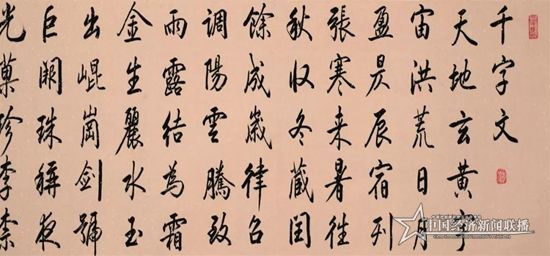 千字文
天地玄黄宇
宙洪荒日月
盈昃辰宿列
張寒来暑往
秋收冬藏闰
餘成歲律召
調陽雲騰致
雨露结為霜
金生麗水玉
出崐崗劍號
巨阙珠稱夜
光菓珍李柰
中国经济新闻联播